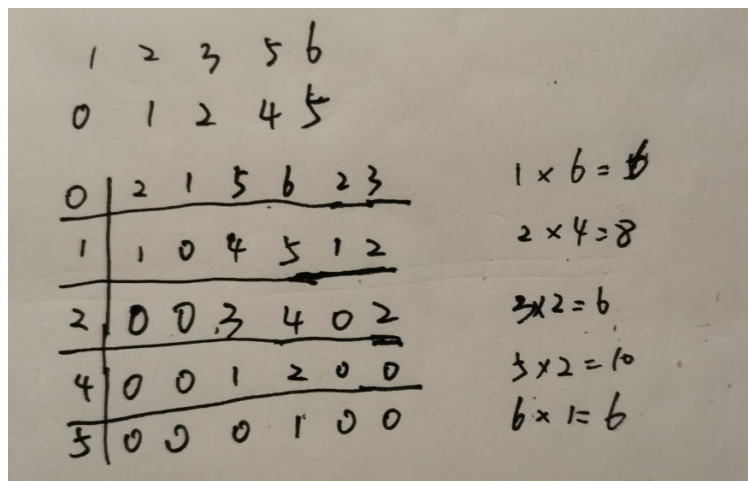 1 2 3 5 6
0 1 2 4 5
0 2 1 5 6 2 3
1 1 0 4 5 1 2
2 0 0 3 4 0 2
4 0 0 1 2 0 0
5 0 0 0 1 0 0
1 × 6 = 6
2 × 4 = 8
3 × 2 = 6
5 × 2 = 10
6 × 1 = 6